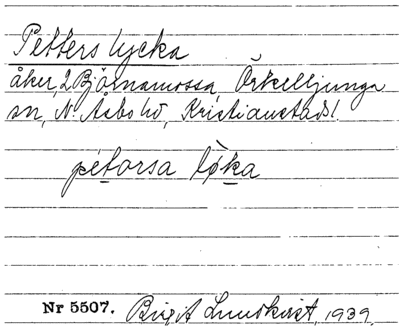 Petters lycka
åker, 2 Björnamossa, Örkelljunga
sn, N. Åsbo hd, Kristianstads l.
pétorsa lø̀ka
Nr 5507. Birgit Lundkvist, 1939.